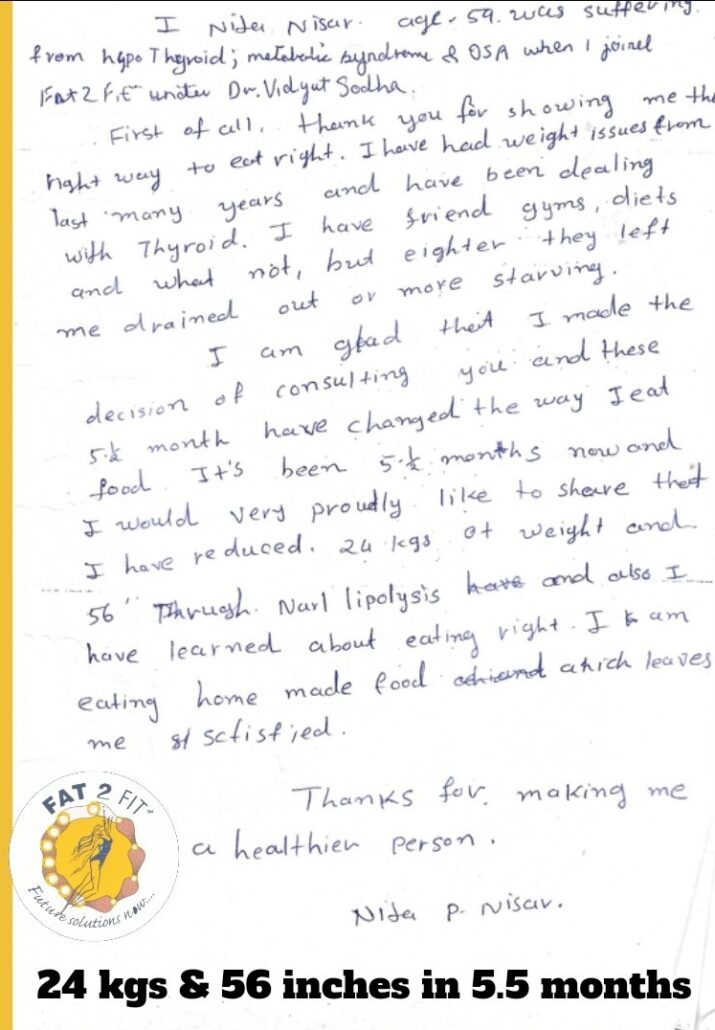 I Nita Nisar. age - 59. was suffering
from hypo Thyroid; metabolic syndrome & OSA when I joined
Fat 2 Fit under Dr. Vidyut Sodha.
First of all, thank you for showing me the
right way to eat right. I have had weight issues from
last many years and have been dealing
with Thyroid. I have friend gyms, diets
and what not, but eighter they left
me drained out or more starving.
I am glad that I made the
decision of consulting you and these
5.½ month have changed the way I eat
food. It's been 5.½ months now and
I would very proudly like to share that
I have reduced. 24 kgs of weight and
56" Through. Narl lipolysis have and also I
have learned about eating right. I am
eating home made food which leaves
me satisfied.
Thanks for making me
a healthier person.
Nita P. Nisar.
FAT 2 FIT™
Future solutions now....
24 kgs & 56 inches in 5.5 months